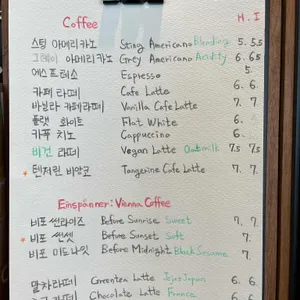 Coffee H. I
스팅 아메리카노 Sting Americano Blending 5. 5.5
그레이 아메리카노 Grey Americano Acidity 6. 6.5
에스프레소 Espresso 5.
카페 라떼 Cafe Latte 6. 6.
바닐라 카페라떼 Vanilla Cafe Latte 7. 7.
플랫 화이트 Flat White 6.
카푸 치노 Cappuccino 6.
비건 라떼 Vegan Latte Oatmilk 7.5 7.5
텐저린 비앙코 Tangerine Cafe Latte 7.
Einspänner: Vienna Coffee
비포 썬라이즈 Before Sunrise Sweet 7.
비포 썬셋 Before Sunset Soft 7.
비포 미드나잇 Before Midnight Black Sesame 7.
말차라떼 Greentea Latte Jeju Japan 6. 6.
Chocolate Latte France 6. 6.